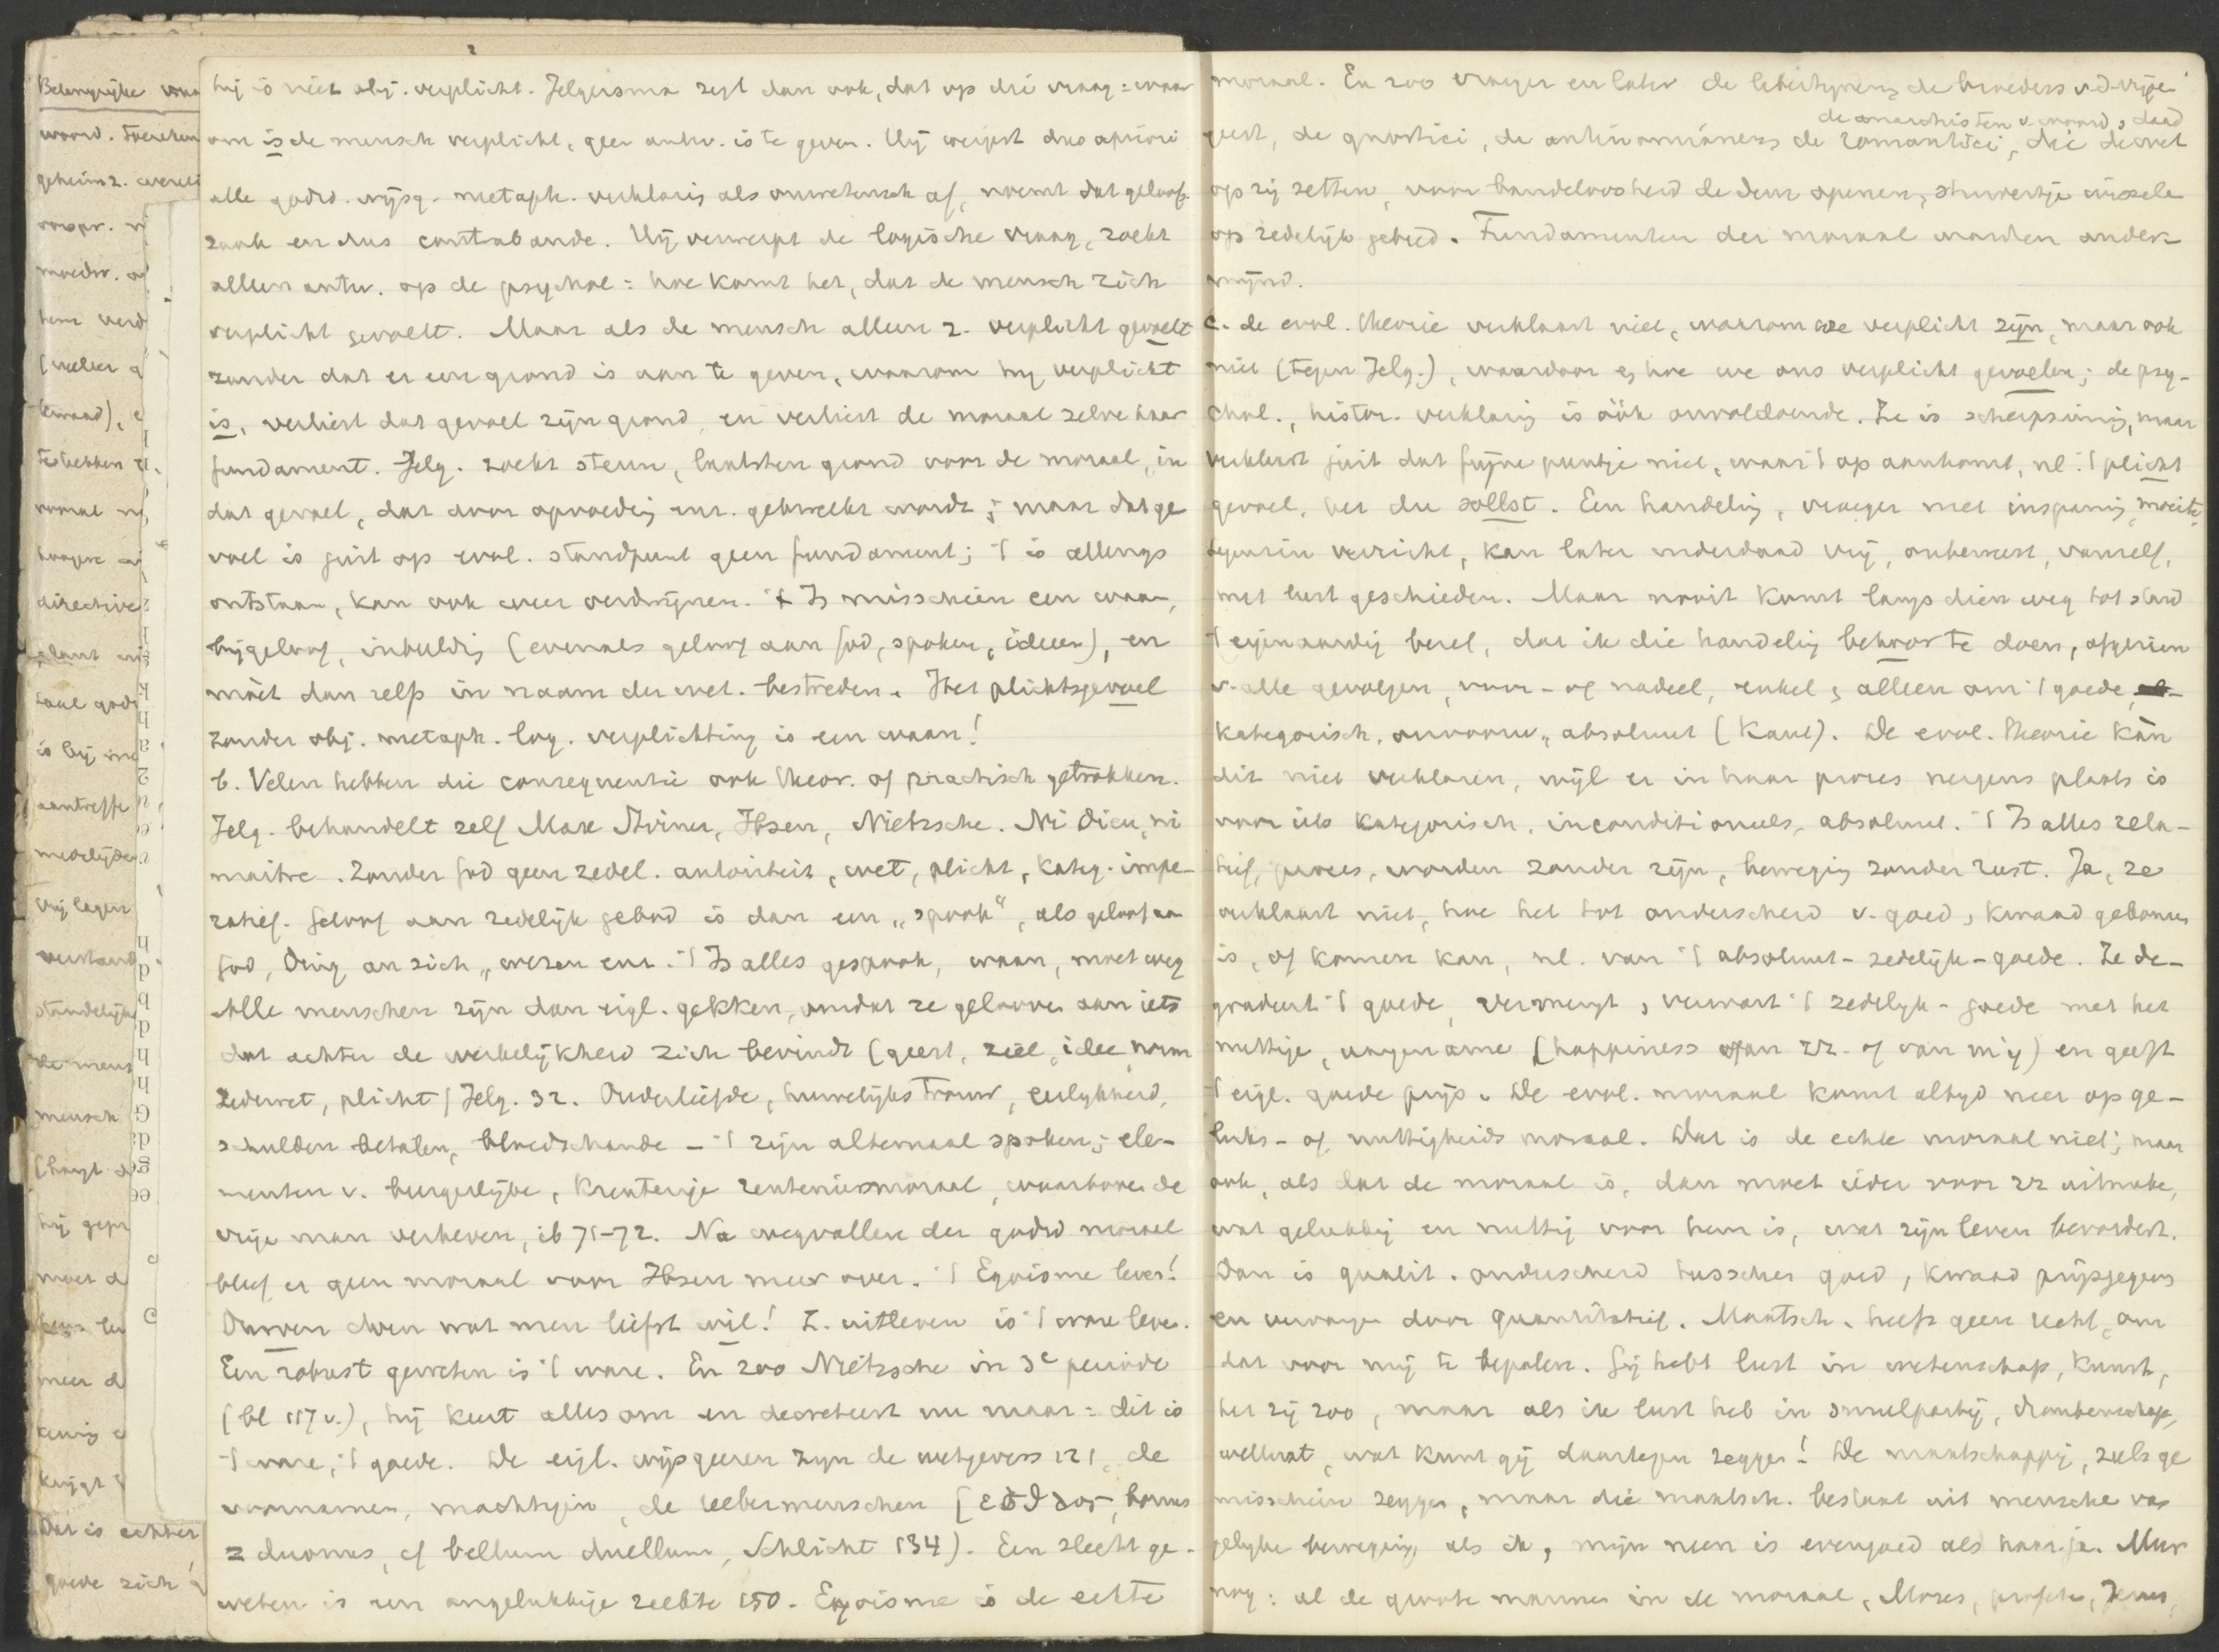 hij is niet obj. verplicht. Jelgersma zegt dan ook, dat op die vraag: waar
om is de mensch verplicht, geen antw. is te geven. Hij weigert dus apriori
alle godsd. wijsg. metaph. verklaring als onwetensch af, noemt dat geloofs
zaak en dus contrabande. Hij verwerpt de logische vraag, zoekt
alleen antw. op de psychol: hoe komt het, dat de mensch zich
verplicht gevoelt. Maar als de mensch alleen z. verplicht gevoelt
zonder dat er een grond is aan te geven, waarom hij verplicht
is, verliest dat gevoel zijn grond, en verliest de moraal zelve haar
fundament. Jelg. zoekt steun, laatsten grond voor de moraal, in
dat gevoel, dat door opvoeding enz. gekweekt wordt; maar dat ge
voel is juist op evol. standpunt geen fundament; 't is allengs
ontstaan, kan ook weer verdwijnen. 't Is misschien een waan,
bijgeloof, inbeelding (evenals geloof aan God, spoken, ideeen), en
moet dan zelfs in naam der wet. bestreden. Het plichtsgevoel
zonder obj. metaph. log. verplichting is een waan!
b. Velen hebben die consequentie ook theor. of practisch getrokken.
Jelg. behandelt zelf Max Stirner, Ibsen, Nietzsche. Ni Dieu, ni
maitre. Zonder God geen zedel. autoriteit, wet, plicht, kateg. impe-
ratief. Geloof aan zedelijk gebod is dan een „spook", als geloof aan
God, Ding an sich, wezen enz. 't Is alles gespook, waan, moet weg
Alle menschen zijn dan eigl. gekken, omdat ze gelooven aan iets
dat achter de werkelijkheid zich bevindt (geest, ziel, idee, norm
zedewet, plicht) Jelg. 32. Ouderliefde, huwelijkstrouw, eerlijkheid,
schulden betalen, bloedschande - 't zijn altemaal spoken; ele-
menten v. burgerlijke, krenterige renteniersmoraal, waarboven de
vrije man verheven, ib 71-72. Na wegvallen der godsd moraal
bleef er geen moraal voor Ibsen meer over. 't Egoisme leve!
Durven doen wat men liefst wil! Z. uitleven is 't ware leven.
Een robust geweten is 't ware. En zoo Nietzsche in 3e periode
(bl 117 v.), hij keert alles om en decreteert nu maar: dit is
't ware, 't goede. De eigl. wijsgeeren zijn de wetgevers 121, de
voornamen, machtigen, de uebermenschen (ἐσθλος, bonus
= duonus, cf bellum duellum, Schlicht 134). Een slecht ge-
weten is een ongelukkige ziekte 150. Egoisme is de echte
moraal. En zoo vroeger en later de libertijnen, de broeders v.d. vrije
de anarchisten v. woord, daad
geest, de gnostici, de antinomianers de romantici, die de wet
op zij zetten, voor bandeloosheid de deur openen,
op zedelijk gebied. Fundamenten der moraal worden onder-
mijnd.
c. de evol. theorie verklaart niet, waarom we verplicht zijn, maar ook
niet (tegen Jelg.), waardoor en hoe we ons verplicht gevoelen; de psy-
chol., histor. verklaring is óók onvoldoende. Ze is scherpzinnig, maar
verklaart juist dat fijne puntje niet, waar 't op aankomt, nl. 't plicht
gevoel, het du sollst. Een handeling, vroeger met inspanning, moeite,
tegenzin verricht, kan later inderdaad vrij, onbewust, vanzelf,
met lust geschieden. Maar nooit komt langs dien weg tot stand
't eigenaardig besef, dat ik die handeling behoor te doen, afgezien
v. alle gevolgen, voor- of nadeel, enkel en alleen om 't goede,
kategorisch, onvoorw., absoluut (Kant). De evol. theorie kàn
dit niet verklaren, wijl er in haar proces nergens plaats is
voor iets kategorisch, inconditioneels, absoluut. 't Is alles rela-
tief, proces, worden zonder zijn, beweging zonder rust. Ja, ze
verklaart niet, hoe het tot onderscheid v. goed, kwaad gekomen
is, of komen kan, nl. van 't absoluut-zedelijk-goede. Ze de-
gradeert 't goede, vermengt, verwart 't zedelijk-goede met het
nuttige, aangename (happiness van zz. of van mij) en geeft
't eigl. goede prijs. De evol. moraal komt altijd neer op ge-
luks- of nuttigheids moraal. Dat is de echte moraal niet; maar
ook, als dat de moraal is, dan moet ieder voor zz uitmaken,
wat gelukkig en nuttig voor hem is, wat zijn leven bevordert.
Dan is qualit. onderscheid tusschen goed, kwaad prijsgegeven
en vervangen door quantitatief. Maatsch. heeft geen recht, om
dat voor mij te bepalen. Gij hebt lust in wetenschap, kunst,
het zij zoo, maar als ik lust heb in smulpartij, dronkenschap,
wellust, wat kunt gij daartegen zeggen! De maatschappij, zult ge
misschien zeggen, maar die maatsch. bestaat uit menschen van
gelijke beweging als ik, mijn neen is evengoed als haar ja. Meer
nog: al de groote mannen in de moraal, Mozes, profeten, Jezus,